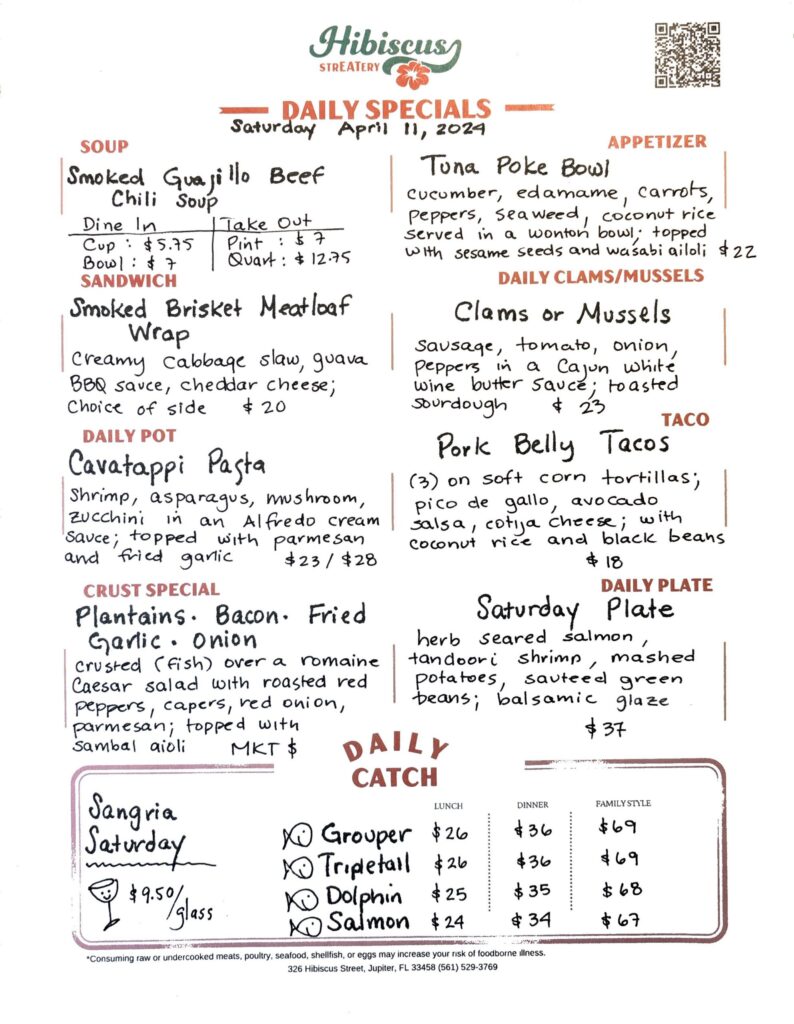 Hibiscus
STREATERY
DAILY SPECIALS
Saturday April 11, 2024
SOUP
Smoked Guajillo Beef
Chili Soup
Dine In Take Out
Cup : $5.75 Pint : $7
Bowl : $7 Quart : $12.75
SANDWICH
Smoked Brisket Meatloaf
Wrap
Creamy cabbage slaw, guava
BBQ sauce, cheddar cheese;
Choice of side $20
DAILY POT
Cavatappi Pasta
Shrimp, asparagus, mushroom,
zucchini in an Alfredo cream
sauce; topped with parmesan
and fried garlic $23 / $28
CRUST SPECIAL
Plantains. Bacon. Fried
Garlic . Onion
crusted (fish) over a romaine
Caesar salad with roasted red
peppers, capers, red onion,
parmesan; topped with
sambal aioli MKT $
APPETIZER
Tuna Poke Bowl
cucumber, edamame, carrots,
peppers, seaweed, coconut rice
served in a wonton bowl; topped
with sesame seeds and wasabi ailoli $22
DAILY CLAMS/MUSSELS
Clams or Mussels
sausage, tomato, onion,
peppers in a Cajun white
wine butter sauce; toasted
sourdough $23
TACO
Pork Belly Tacos
(3) on soft corn tortillas;
pico de gallo, avocado
salsa, cotija cheese; with
coconut rice and black beans
$18
DAILY PLATE
Saturday Plate
herb seared salmon,
tandoori shrimp, mashed
potatoes, sauteed green
beans; balsamic glaze
$37
DAILY
CATCH
Sangria
Saturday
$9.50/glass
LUNCH DINNER FAMILY STYLE
Grouper $26 $36 $69
Tripletail $26 $36 $69
Dolphin $25 $35 $68
Salmon $24 $34 $67
*Consuming raw or undercooked meats, poultry, seafood, shellfish, or eggs may increase your risk of foodborne illness.
326 Hibiscus Street, Jupiter, FL 33458 (561) 529-3769